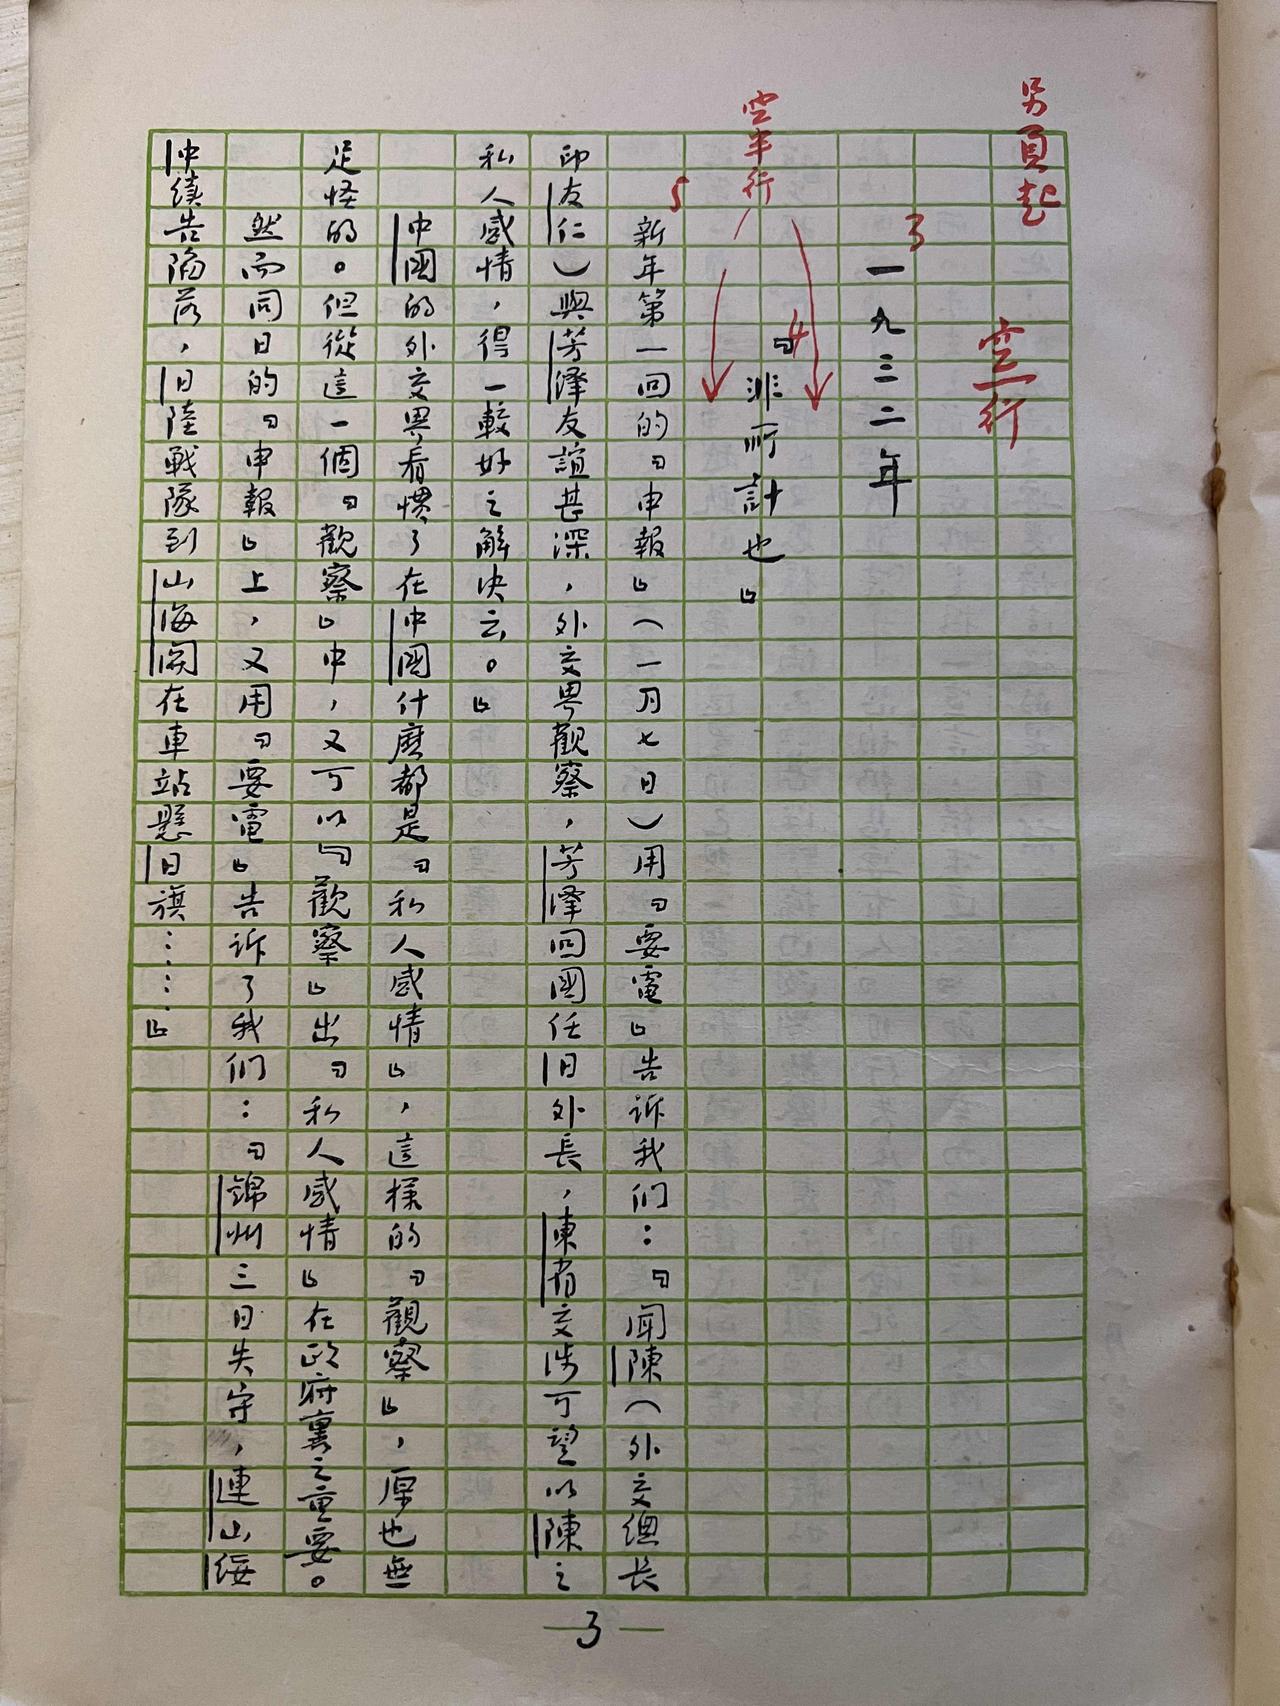 另頁起
空一行
3
一九三二年
空半行
4
「非所計也」
5
新年第一回的「申報」（一月七日）用「要電」告訴我们：「聞陳（外交總长
印友仁）與芳澤友誼甚深，外交界觀察，芳澤回國任日外長，東省交涉可望以陳之
私人感情，得一較好之解决云。」
中國的外交界看惯了在中國什麽都是「私人感情」，這樣的「觀察」，原也無
足怪的。但從這一個「觀察」中，又可以「觀察」出「私人感情」在政府裏之重要。
然而同日的「申報」上，又用「要電」告诉了我们：「錦州三日失守，連山綏
中續告陷落，日陸戰隊到山海関在車站懸日旗……」
—3—